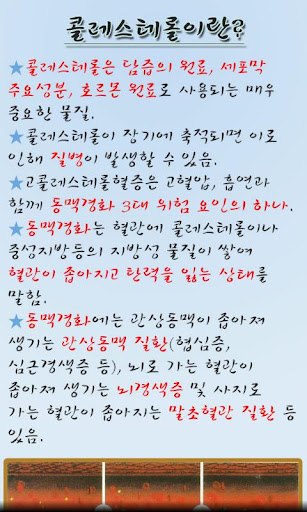 콜레스테롤이란?
★콜레스테롤은 담즙의 원료, 세포막
주요성분, 호르몬 원료로 사용되는 매우
중요한 물질.
★콜레스테롤이 장기에 축적되면 이로
인해 질병이 발생할 수 있음.
★고콜레스테롤혈증은 고혈압, 흡연과
함께 동맥경화 3대 위험 요인의 하나.
★동맥경화는 혈관에 콜레스테롤이나
중성지방등의 지방성 물질이 쌓여
혈관이 좁아지고 탄력을 잃는 상태를
말함.
★동맥경화에는 관상동맥이 좁아져
생기는 관상동맥 질환(협심증,
심근경색증 등), 뇌로 가는 혈관이
좁아져 생기는 뇌경색증 및 사지로
가는 혈관이 좁아지는 말초혈관 질환 등
있음.